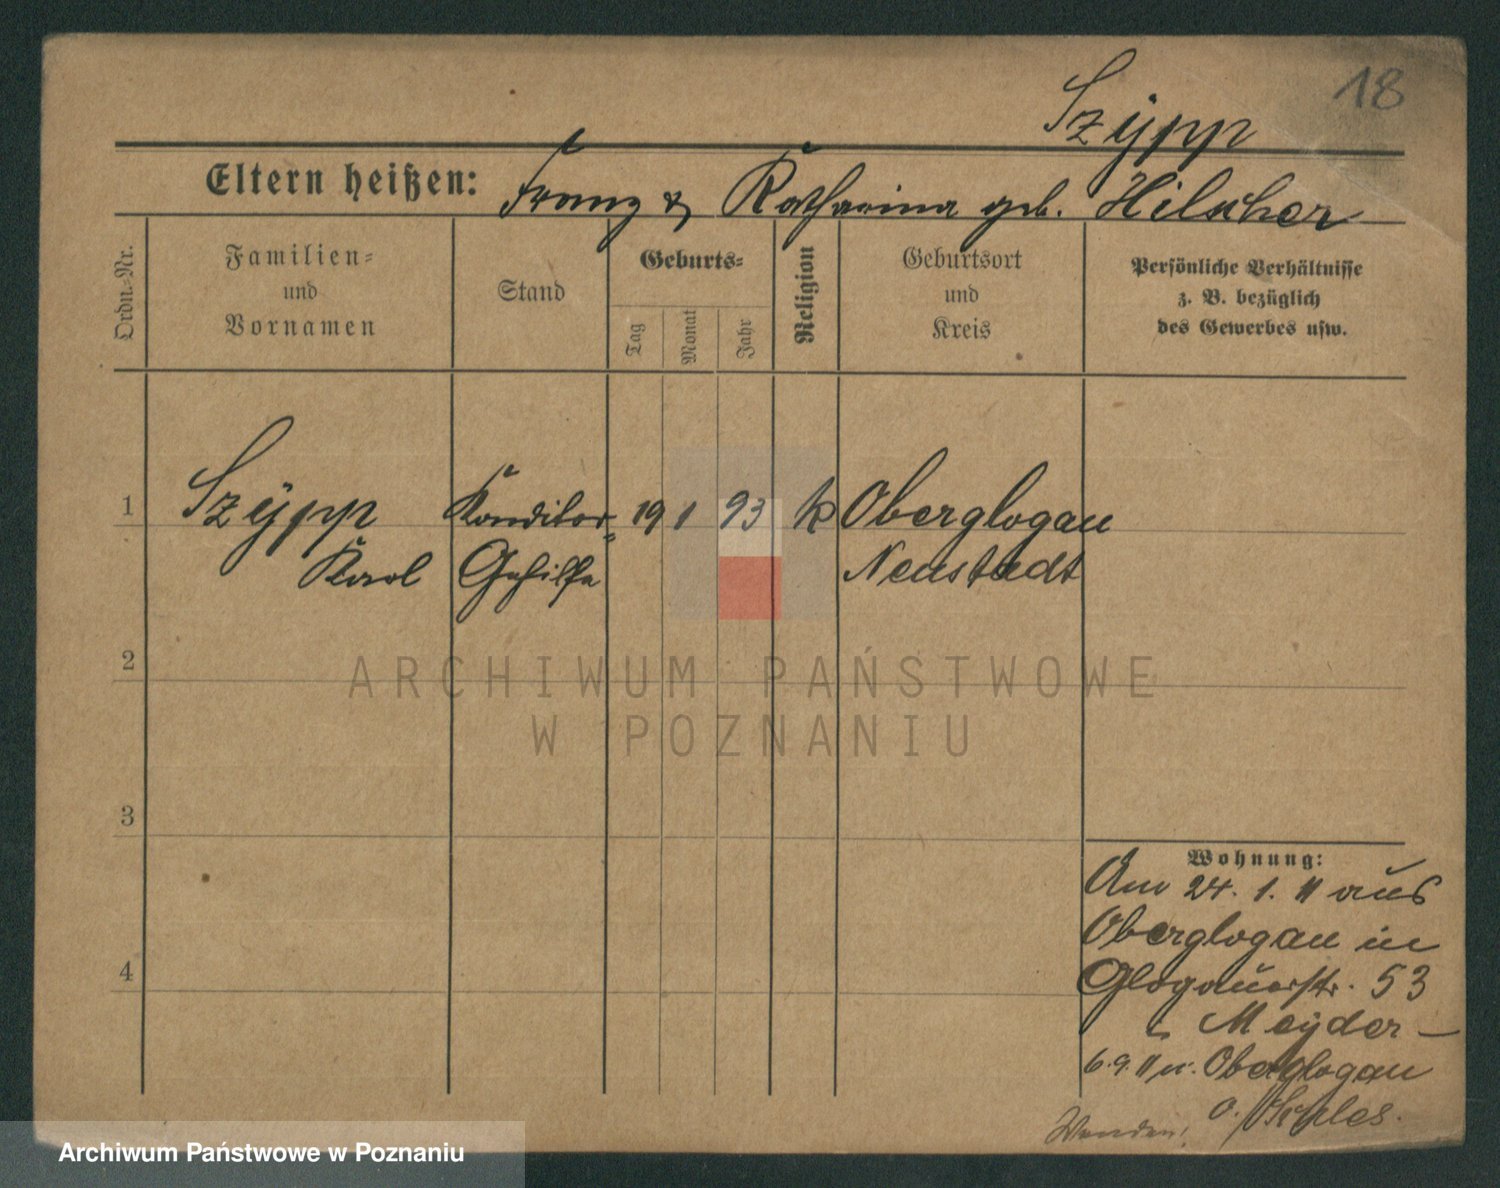 18
Szÿpp
Eltern heißen: Franz & Katharina geb. Hilscher
Ordn.-Nr.
Familien-
und
Vornamen
Stand
Geburts-
Tag
Monat
Jahr
Religion
Geburtsort
und
Kreis
Persönliche Verhältnisse
z. B. bezüglich
des Gewerbes usw.
1 Szÿpp Konditor- 19 1 93 k Oberglogau
Karl Gehilfe Neustadt
2
3
4
Wohnung:
Am 24. 1. 11 aus
Oberglogau in
Glogauerstr. 53
b. Meÿder -
6.9.11 n. Oberglogau
O./Schles.
Wenden!
ARCHIWUM PAŃSTWOWE
W POZNANIU
Archiwum Państwowe w Poznaniu